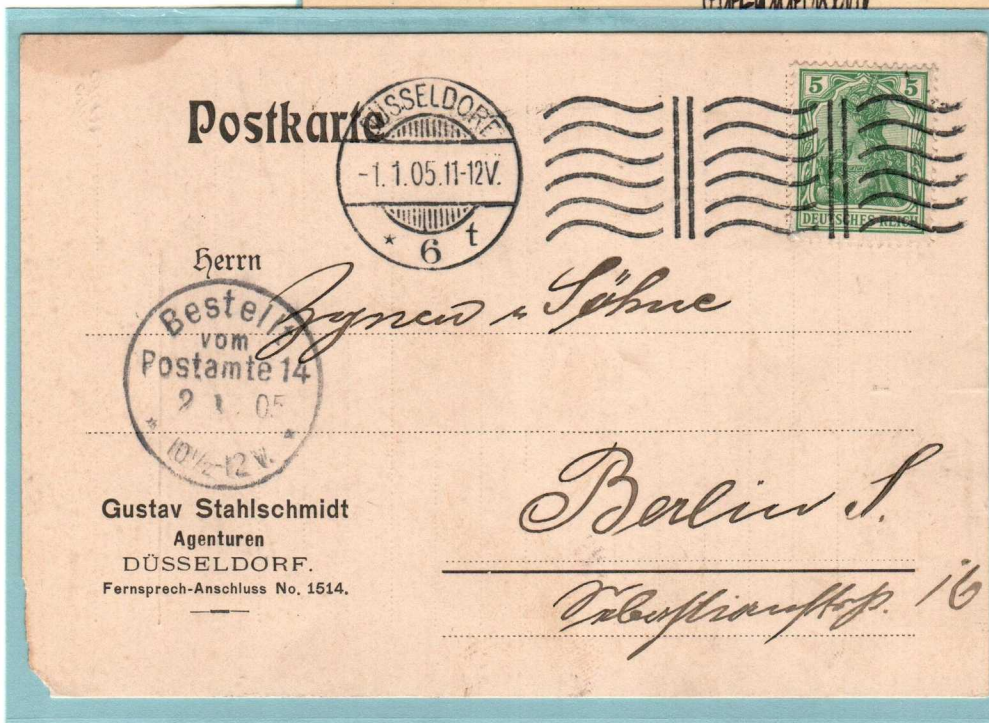 Postkarte
DÜSSELDORF
-1.1.05.11-12V.
* 6 t
5 5
DEUTSCHES REICH
Herrn
Zynen u Söhne
Bestellt
vom
Postamte 14
2 1. 05
* 10½-12 V. *
Berlin S.
Sebastianstr. 16
Gustav Stahlschmidt
Agenturen
DÜSSELDORF.
Fernsprech-Anschluss No. 1514.